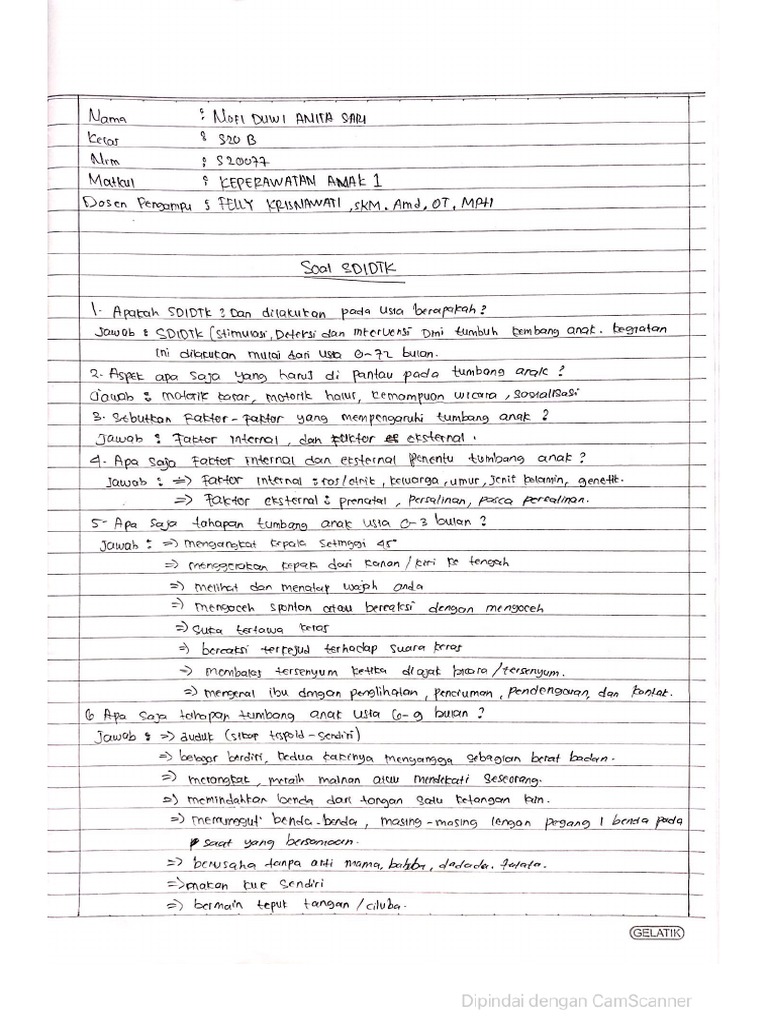 Nama : NOFI DUWI ANITA SARI
Kelas : S20 B
Nim : S20077
Matkul : KEPERAWATAN ANAK 1
Dosen Pengampu : FELLY KRISNAWATI, SKM. Amd, OT, MPH
Soal SDIDTK
1. Apakah SDIDTK ? Dan dilakukan pada usia berapakah ?
Jawab : SDIDTK (Stimulasi, Deteksi dan Intervensi Dini tumbuh kembang anak. kegiatan
ini dilakukan mulai dari usia 0-72 bulan.
2. Aspek apa saja yang harus di pantau pada tumbang anak ?
Jawab : motorik kasar, motorik halus, kemampuan wicara, sosialisasi
3. Sebutkan Faktor-faktor yang mempengaruhi tumbang anak ?
Jawab : Faktor Internal, dan faktor eksternal.
4. Apa saja Faktor internal dan eksternal penentu tumbang anak ?
Jawab : => Faktor Internal : ras/etnik, keluarga, umur, jenis kelamin, genetik.
=> Faktor eksternal : prenatal, persalinan, pasca persalinan.
5. Apa saja tahapan tumbang anak usia 0-3 bulan ?
Jawab : => mengangkat kepala setinggi 45°
=> menggerakan kepala dari kanan/kiri ke tengah
=> melihat dan menatap wajah anda
=> mengoceh spontan atau bereaksi dengan mengoceh
=> suka tertawa keras
=> bereaksi terkejut terhadap suara keras
=> membalas tersenyum ketika diajak bicara/tersenyum.
=> mengenal ibu dengan penglihatan, penciuman, pendengaran, dan kontak.
6 Apa saja tahapan tumbang anak usia 6-9 bulan ?
Jawab : => duduk (sikap - sendiri)
=> belajar berdiri, kedua kakinya menyangga sebagian berat badan.
=> merangkak, meraih mainan atau mendekati seseorang.
=> memindahkan benda dari tangan satu ketangan lain.
=> memunggut benda-benda, masing-masing lengan pegang 1 benda pada
saat yang bersamaan.
=> berusaha tanpa arti mama, dadada. tatata.
=> makan kue sendiri
=> bermain tepuk tangan/ciluba.
GELATIK
Dipindai dengan CamScanner